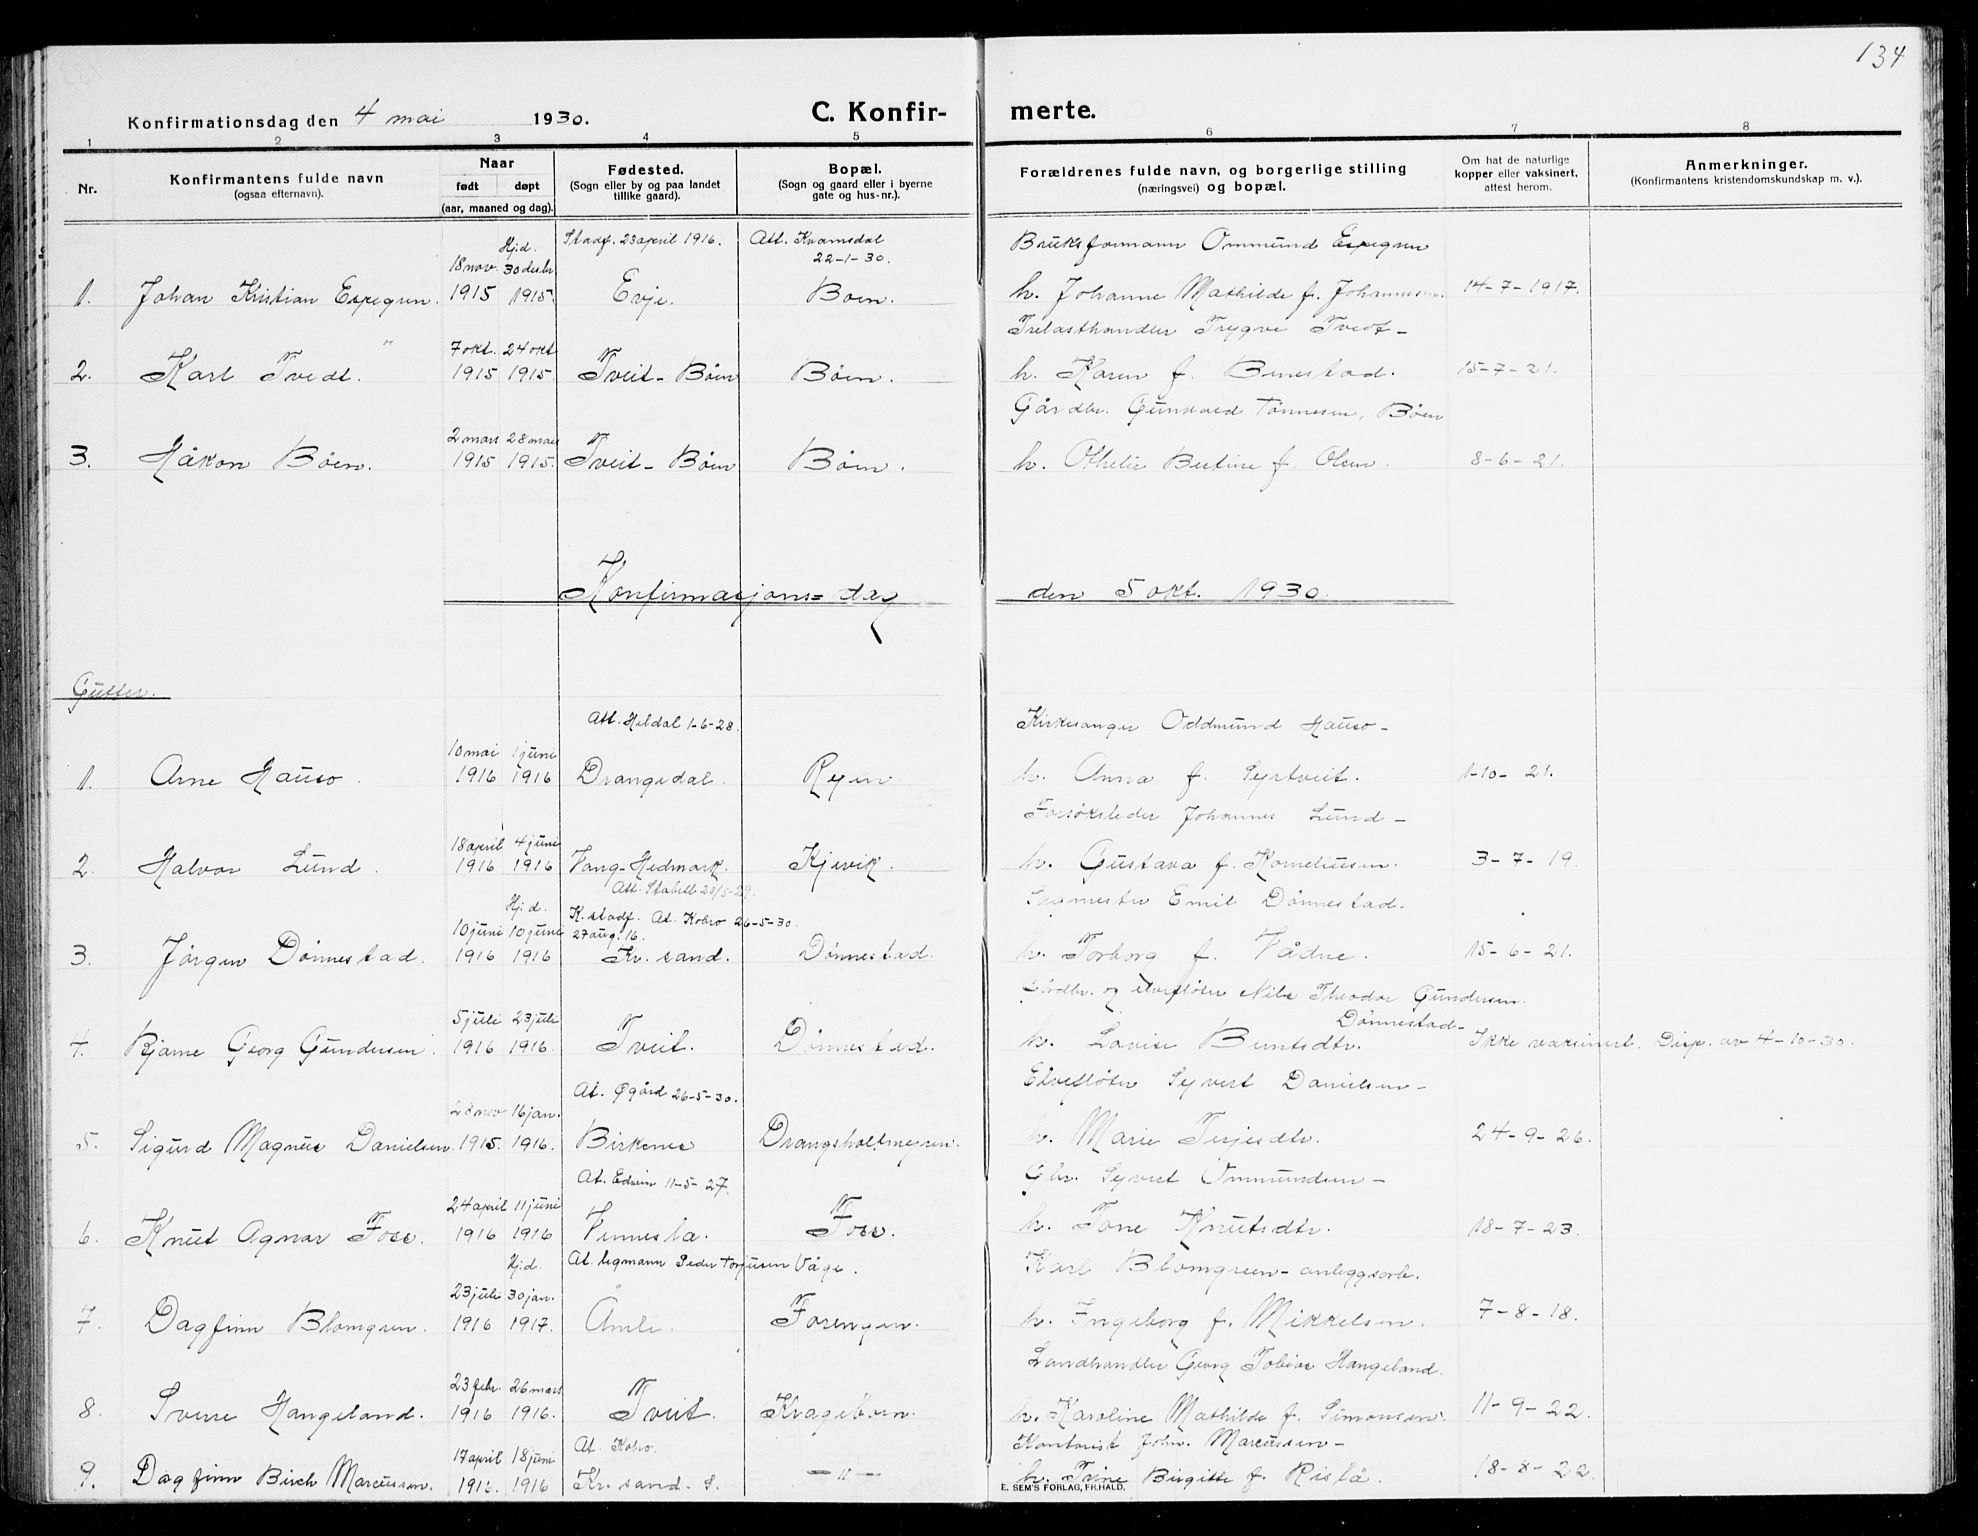 134
Konfirmationsdag den 4 mai 1930. C. Konfirmerte.
1 2 3 4 5 6 7 8
Nr. Konfirmantens fulde navn (ogsaa efternavn). Naar født døpt (aar, maaned og dag). Fødested. (Sogn eller by og paa landet tillike gaard). Bopæl. (Sogn og gaard eller i byerne gate og hus-nr.). Forældrenes fulde navn, og borgerlige stilling (næringsvei) og bopæl. Om hat de naturlige kopper eller vaksinert, attest herom. Anmerkninger. (Konfirmantens kristendomskundskap m. v.).
Hj.d. Stadf. 23 april 1916. Att. Kvamsdal 22-1-30. Bruksformann Ommund Espegren
18 nov. 30 desbr.
1. Johan Kristian Espegren. 1915 1915. Evje. Boen h. Johanne Mathilde f. Johannesen. 14-7-1917.
Trelasthandler Trygve Tvedt-
7 okt. 24 okt
2. Karl Tvedt. 1915 1915. Tveit-Böen Böen. h. Karen f. Benestad. 15-7-21.
Gårdbr. Gunvald Tönnesen, Böen
2 mars 28 mars
3. Håkon Böen. 1915 1915. Tveit-Böen Böen. h. Othelie Bertine f. Olsen. 8-6-21.
Konfirmasjons=dag den 5 okt. 1930.
Gutter.
Att. Heldal 1-6-28. Kirkesanger Oddmund Hauso-
10 mai 1 juni
1. Arne Hauso. 1916 1916 Drangedal. Ryen h. Anna f. Syrtveit. 1-10-21.
Forsöksleder Johannes Lund-
18 april 4 juni
2. Halvor Lund. 1916 1916 Vang-Hedmark. Kjevik. h. Gustava f. Korneliusen. 3-7-19.
Att. Stabell 28/5-29.
Sagmester Emil Dönnestad.
Hj.d. K. stadf. At. Kobro 26-5-30.
10 juni 10 juni 27 aug. 16.
3. Jörgen Dönnestad. 1916 1916 Kr. sand. Dönnestad. h. Torborg f. Vådne. 15-6-21.
Gårdbr. og elveflöter Nils Theodor Gundersen.
Dönnestad-
5 juli 23 juli
4. Bjarne Georg Gundersen. 1916 1916. Tveit. Dönnestad. h. Lovise Berntsdtr. Ikke vaksinert. Disp. av 4-10-30.
Elveflöter Syvert Danielsen-
At. Øgård 26-5-30.
28 nov 16 jan.
5. Sigurd Magnus Danielsen. 1915. 1916. Birkenes Drangsholtmyren. h. Marie Terjesdtr. 24-9-26.
Gbr. Syvert Ommundsen-
At. Edvin 11-5-27.
24 april 11 juni
6. Knut Agnar Foss. 1916 1916 Vennesla. Foss. h. Tone Knutsdtr. 18-7-23.
Hj.d. At. legmann Peder Torjusen Våge. Karl Blomgreen-anleggsarb.
23 juli 30 jan.
7. Dagfinn Blomgren. 1916 1917. Åmli. Forengen. h. Ingeborg f. Mikkelsen. 7-8-18.
Landhandler Georg Tobias Hangeland.
23 febr. 26 mars
8. Sverre Hangeland. 1916 1916. Tveit. Krageboen. h. Karoline Mathilde f. Simonsen. 11-9-22.
Kontorist Johs. Marcussen-
17 april 18 juni At. Kobro.
9. Dagfinn Birch Marcussen. 1916. 1916 Kr. sand. S. -"- h. Trine Birgitte f. Rislå. 18-8-22.
E. SEM'S FORLAG, FR.HALD.